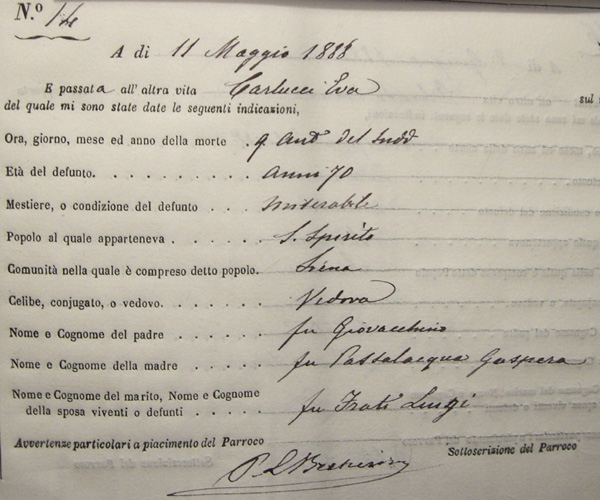 N.º 14
A di 11 Maggio 1888
E passata all'altra vita Carlucci Eva
del quale mi sono state date le seguenti indicazioni,
Ora, giorno, mese ed anno della morte . 9 ant del sudd
Età del defunto. . . . . . . . . Anni 70
Mestiere, o condizione del defunto . . . miserabile
Popolo al quale apparteneva . . . . . . S. Spirito
Comunità nella quale è compreso detto popolo. Siena
Celibe, conjugato, o vedovo. . . . . . . Vedova
Nome e Cognome del padre . . . . . . fu Giovacchino
Nome e Cognome della madre . . . . . . fu Passalacqua Gaspera
Nome e Cognome del marito, Nome e Cognome
della sposa viventi o defunti . . . . . fu Frati Luigi
Avvertenze particolari a piacimento del Parroco
Sottoscrizione del Parroco